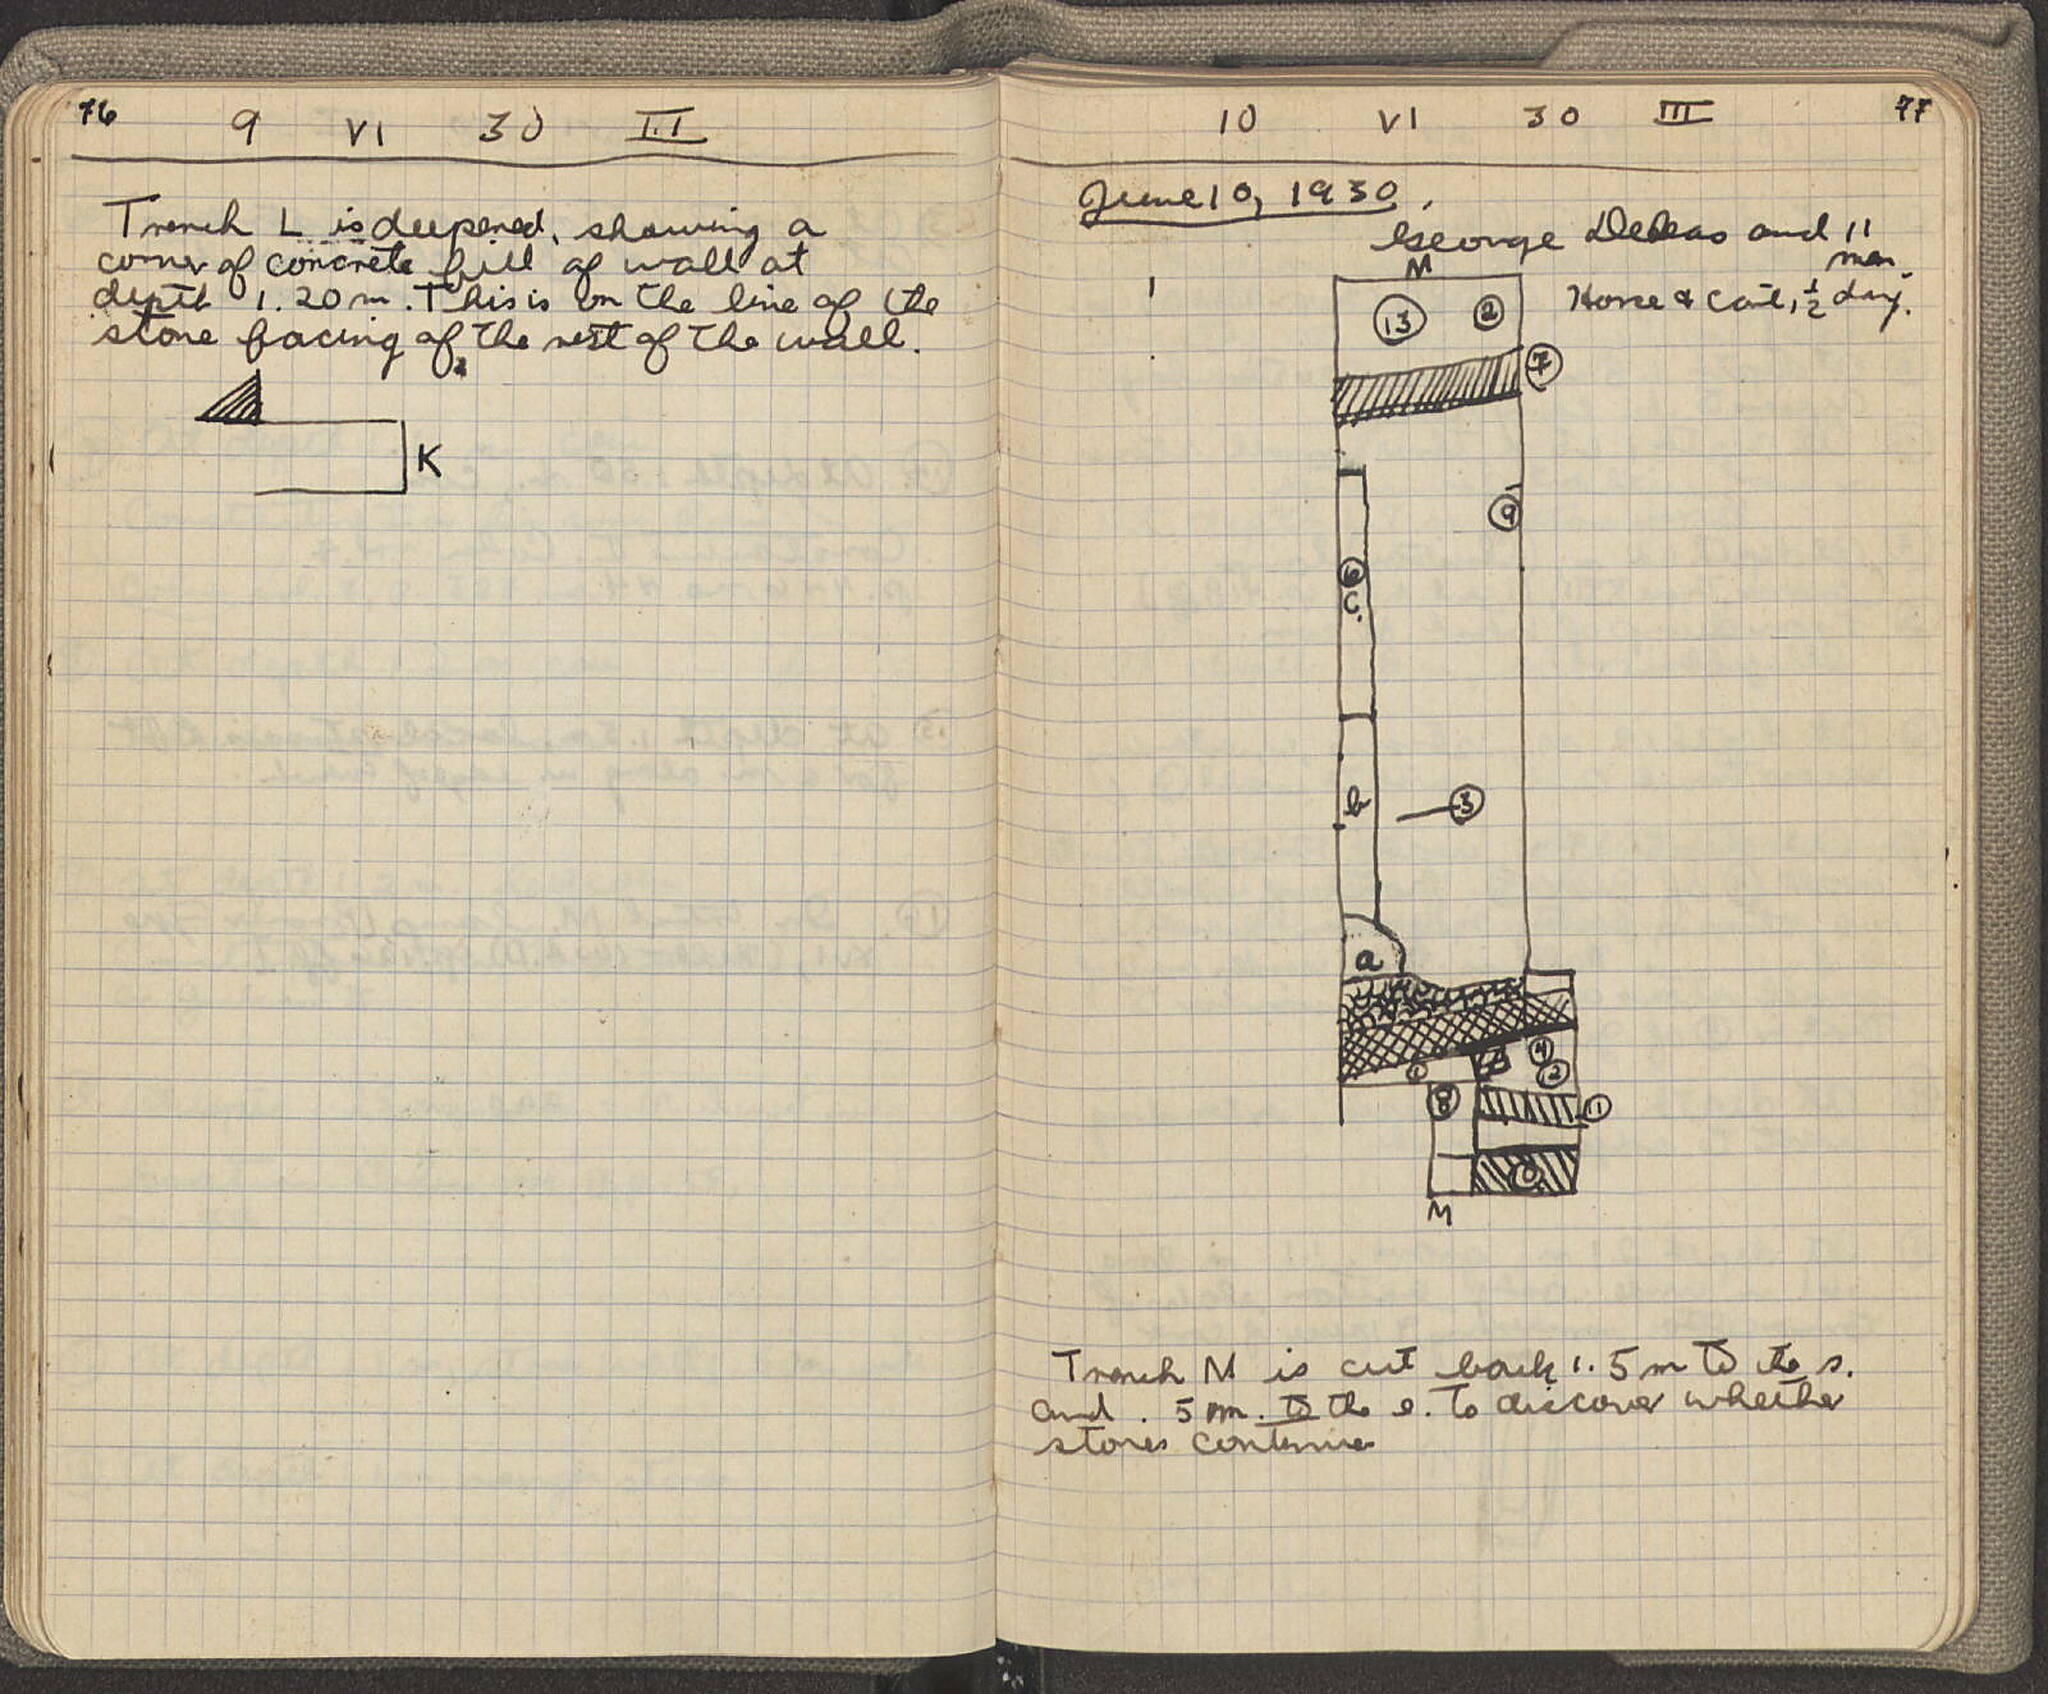 76
9 VI 30 III
Trench L is deepened, showing a
corner of concrete fill of wall at
depth 1.20 m. This is on the line of the
stone facing of the rest of the wall.
K
10 VI 30 III
77
June 10, 1930.
George Dekas and 11
men.
Horse & cart, 1/2 day.
M
13 2
7
9
6
c.
b
3
a
4
1
B
12
8
11
C
M
Trench M is cut back 1.5 m to the s.
and .5 m. to the e. to discover whether
stones continue